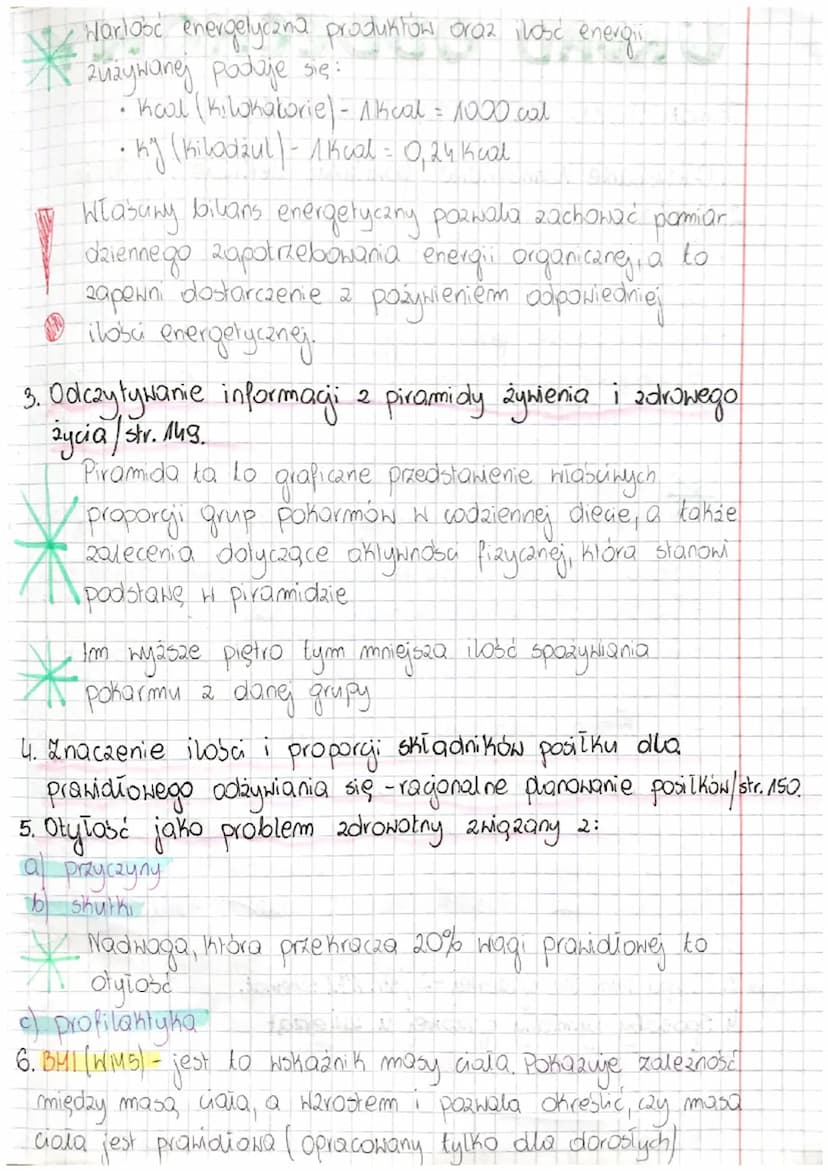 Wartość energetyczna produktów oraz ilość energii
zużywanej podaje się:
• Kcal (kilokalorie) - 1kcal = 1000 cal
• Kj (kilodżul) - 1kcal = 0,24 kcal
Właściwy bilans energetyczny pozwala zachować pomiar
dziennego zapotrzebowania energii organicznej, a to
zapewni dostarczenie z pożywieniem odpowiedniej
ilości energetycznej.
3. Odczytywanie informacji z piramidy żywienia i zdrowego
życia/str. 149.
Piramida ta to graficzne przedstawienie właściwych
proporcji grup pokarmów w codziennej diecie, a także
zalecenia dotyczące aktywności fizycznej, która stanowi
podstawę w piramidzie
Im wyższe piętro tym mniejsza ilość spożywiania
pokarmu z danej grupy
4. Znaczenie ilości i proporcji składników posiłku dla
prawidłowego odżywiania się - racjonalne planowanie posiłków/str. 150.
5. Otyłość jako problem zdrowotny związany z:
a) przyczyny
b) skutki
Nadwaga, która przekracza 20% wagi prawidłowej to
otyłość
c) profilaktyka
6. BMI (WMS) - jest to wskaźnik masy ciała. Pokazuje zależność
między masą ciała, a wzrostem i pozwala określić, czy masa
ciała jest prawidłowa (opracowany tylko dla dorosłych)